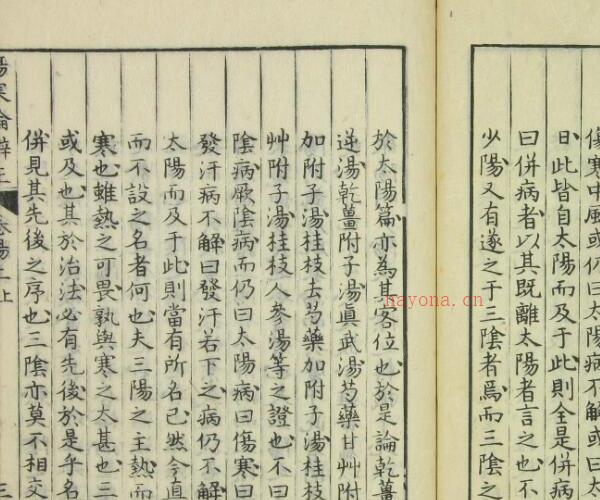 傷寒中風或仍曰太陽病不解或曰太
曰此皆自太陽而及于此則全是併病
曰併病者以其既離太陽者言之也不
少陽又有遂之于三陰者焉而三陰之
於太陽篇亦為其客位也於是論乾薑
逆湯乾薑附子湯真武湯芍藥甘艸附
加附子湯桂枝去芍藥加附子湯桂枝
艸附子湯桂枝人參湯等之證也不曰
陰病厥陰病而仍曰太陽病曰傷寒曰
發汗病不解曰發汗若下之病仍不解
太陽而及于此則當有所名已然今直
而不設之名者何也夫三陽之主熱而
寒也雖熱之可畏孰與寒之太甚也三
或及也其於治法必有先後於是乎名
併見其先後之序也三陰亦莫不相交
傷寒論辯正 卷陽上 三
nayona.cn